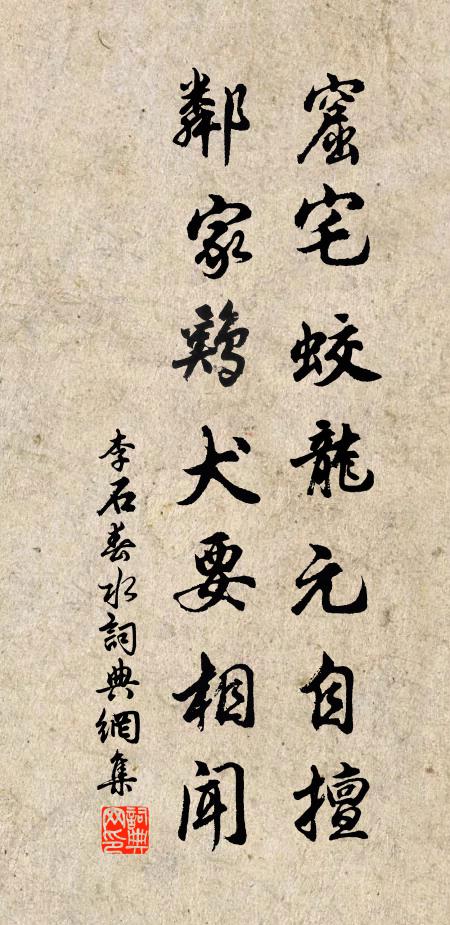 窟宅蛟龍元自擅
鄰家鷄犬要相聞
李石春水詞典網集
詞典網印